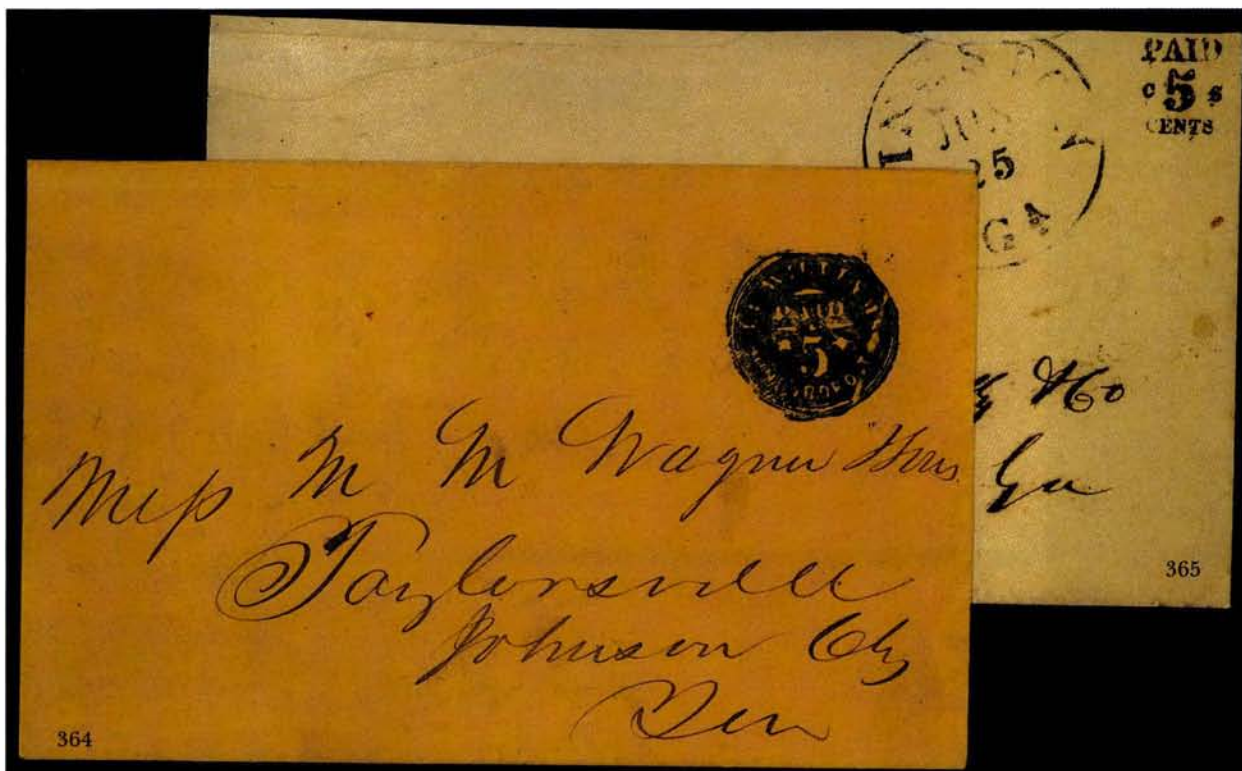 PAID
c 5 s
CENTS
25
GA
PAID
5
Mess M M Wagner
Taylorsville
Johnson Cty
Ten
Ga
365
364